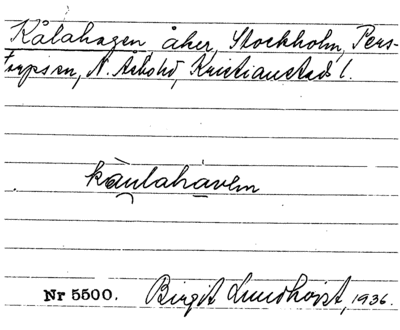 Kålahagen åker, Stockholm, Pers-
torps sn, N. Åsbo hd, Kristianstads l.
kàulahàvem
Nr 5500. Birgit Lundkvist, 1936.